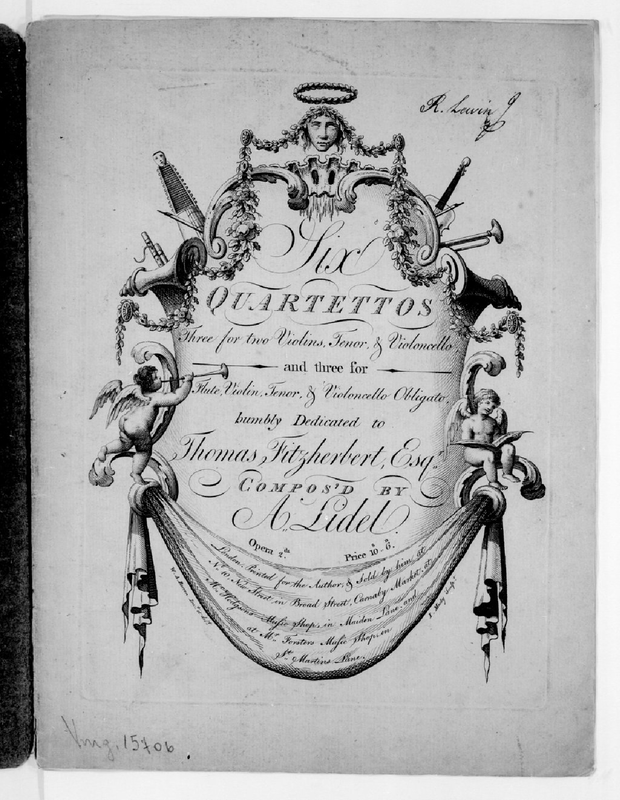 R. Lewin
Six
QUARTETTOS
Three for two Violins, Tenor, & Violoncello
and three for
Flute, Violin, Tenor, & Violoncello Obligato.
humbly Dedicated to
Thomas Fitzherbert, Esqr.
COMPOS'D BY
A. Lidel
Opera 2da Price 10s. 6.
London Printed for the Author, & Sold by him, at
No. 10. New Street in Broad Street, Carnaby Market, at
Music Shop, in Maiden Lane, and
at Mr. Forsters Music Shop, in
St. Martins Lane.
Vmg. 15706